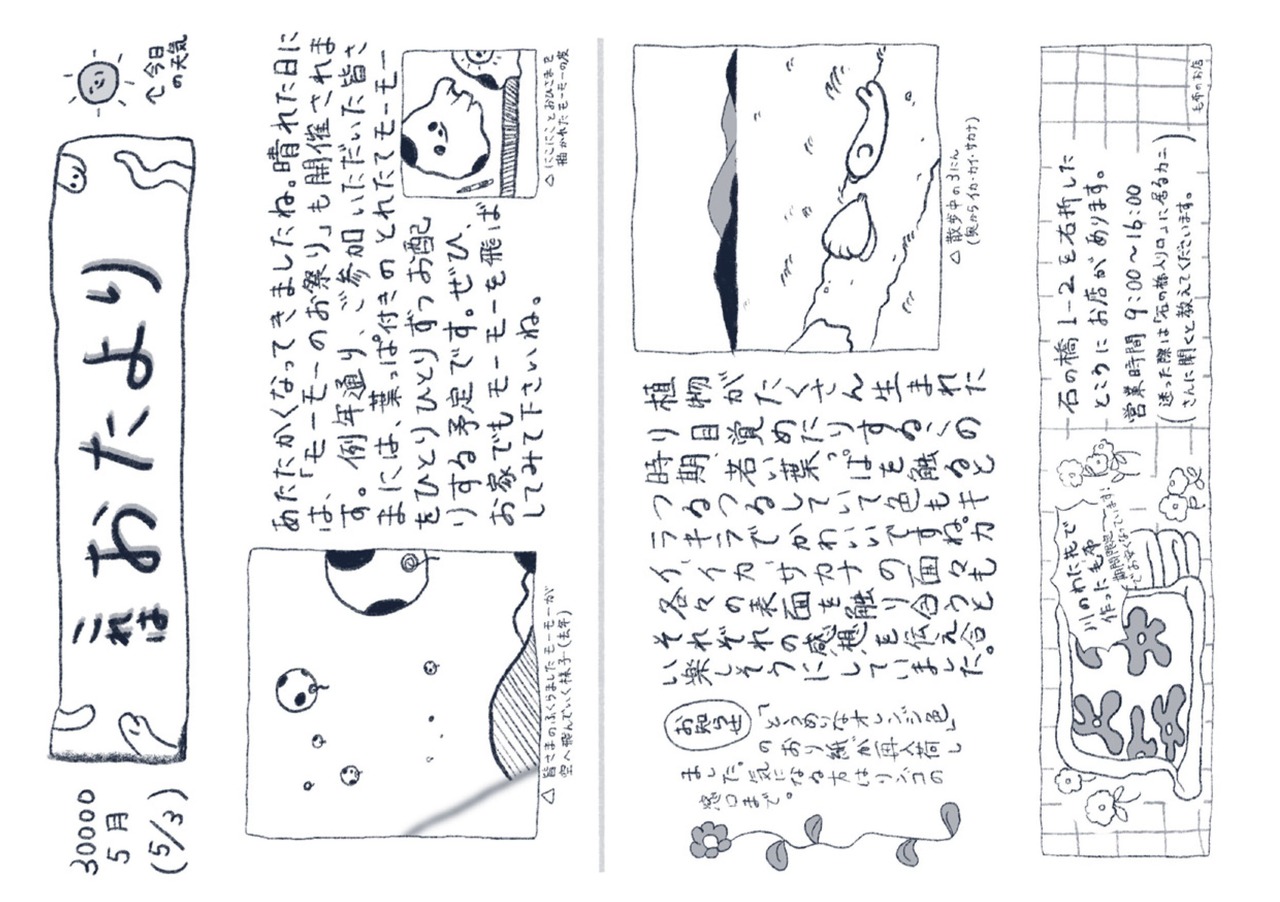 30000
5月
(5/3)
これは
おたより
↑今日
の天気
あたたかくなってきましたね。晴れた日に
は、「モーモーのお祭り」も開催されま
す。例年通り、ご参加いただいた皆さ
まには、葉っぱ付きのとれたてモーモー
をひとりひとりずつお配
りする予定です。ぜひ、
お家でもモーモーを飛ば
してみて下さいね。
△ 皆さまのふくらましたモーモーが
空へ飛んでいく様子(去年)
△ にこにことおひさまを
描かれたモーモーの皮
植物がたくさん生まれた
り目覚めたりするこの
時期、若い葉っぱを触ると
つるつるしていて色もキ
ラキラでかわいいですね。カ
イ、イカ、サカナの面々も
各々の表面を触り合うと
それぞれの感想を伝え合
い楽しそうにしていました。
△ 散歩中の3にん
(奥からイカ・カイ・サカナ)
お知らせ
「とうめいなオレンジ色」
のおり紙が再入荷し
ました。気になる方はリバコの
窓口まで。
川のわた花で
作った毛布
期間限定
でお安くなっています!
石の橋1-2を右折した
ところにお店があります。
営業時間 9:00〜16:00
(迷った際は「石の橋入り口」に居るカニ
さんに聞くと教えてくださいます。)
毛布のお店